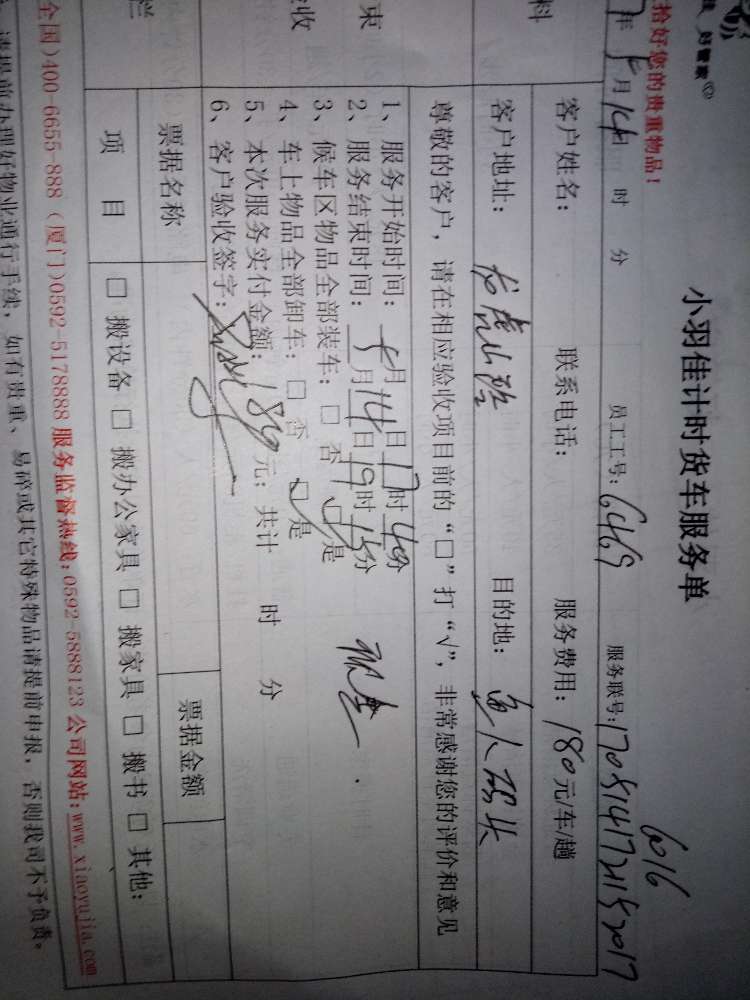 好管家
拾好您的贵重物品!
小羽佳计时货车服务单
年 5月14日 时 分 员工工号: 6469 服务联号:
6016
客户姓名: 联系电话: 服务费用: 180元/车/趟
客户地址: 龙虎山路 目的地: 面人码头
尊敬的客户, 请在相应验收项目前的“□”打“√”, 非常感谢您的评价和意见
1、服务开始时间: 5月14日17时40分
2、服务结束时间: 月14日19时15分
3、候车区物品全部装车: □ 否 ☑ 是
4、车上物品全部卸车: □ 否 ☑ 是
5、本次服务实付金额: 180元; 共计 时 分
6、客户验收签字:
票据名称 票据金额
项 目 □ 搬设备 □ 搬办公家具 □ 搬家具 □ 搬书 □ 其他:
全国)400-6655-888 (厦门)0592-5178888 服务监督热线:0592-5888123 公司网站:www.xiaoyujia.com
请提前办理好物业通行手续, 如有贵重、易碎或其它特殊物品请提前申报, 否则我司不予负责。